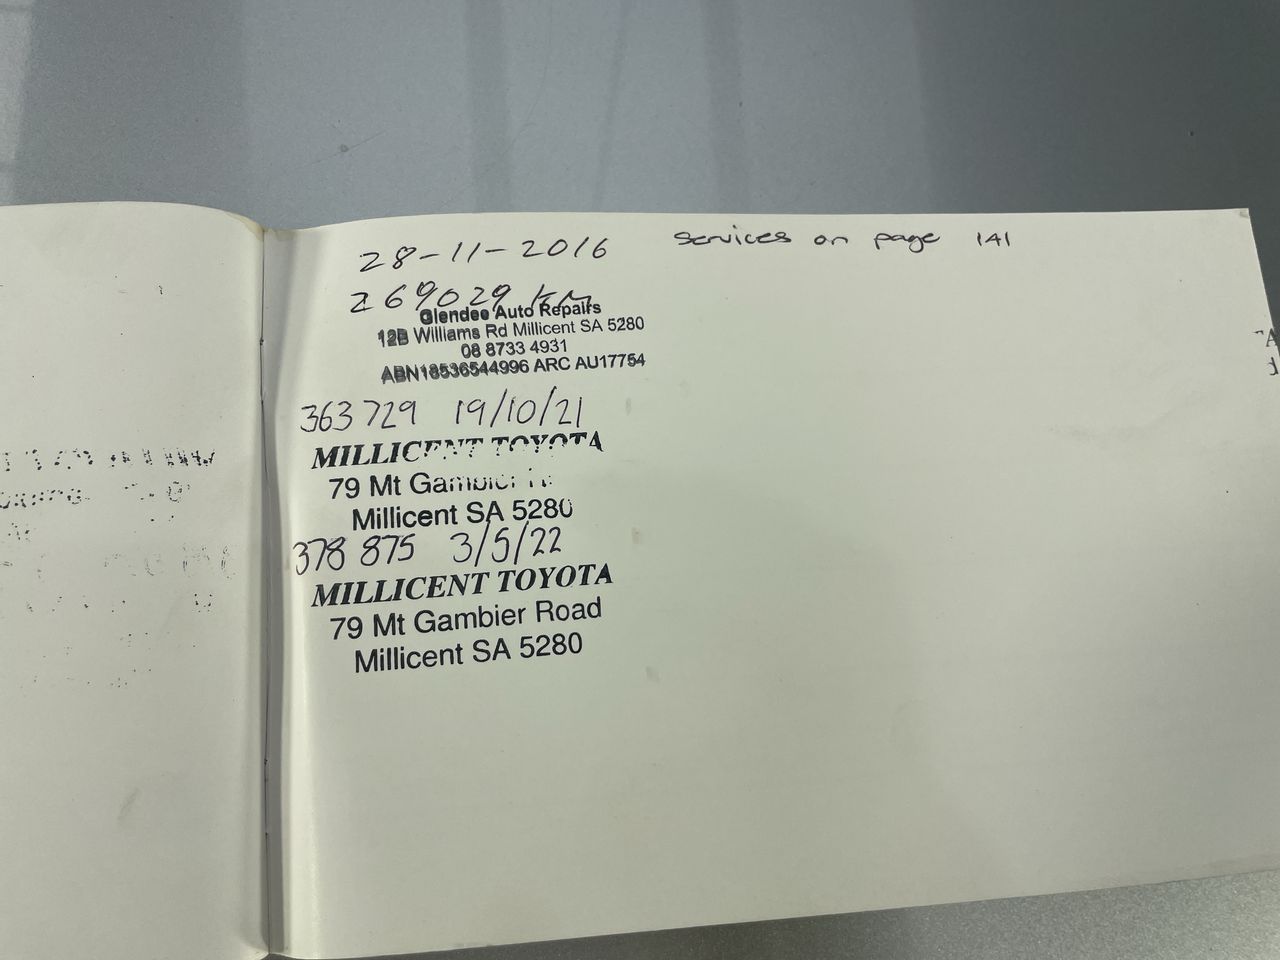 28-11-2016
services on page 141
269029 km
Glendee Auto Repairs
12B Williams Rd Millicent SA 5280
08 8733 4931
ABN18536544996 ARC AU17754
363 729 19/10/21
MILLICENT TOYOTA
79 Mt Gambier
Millicent SA 5280
378 875 3/5/22
MILLICENT TOYOTA
79 Mt Gambier Road
Millicent SA 5280